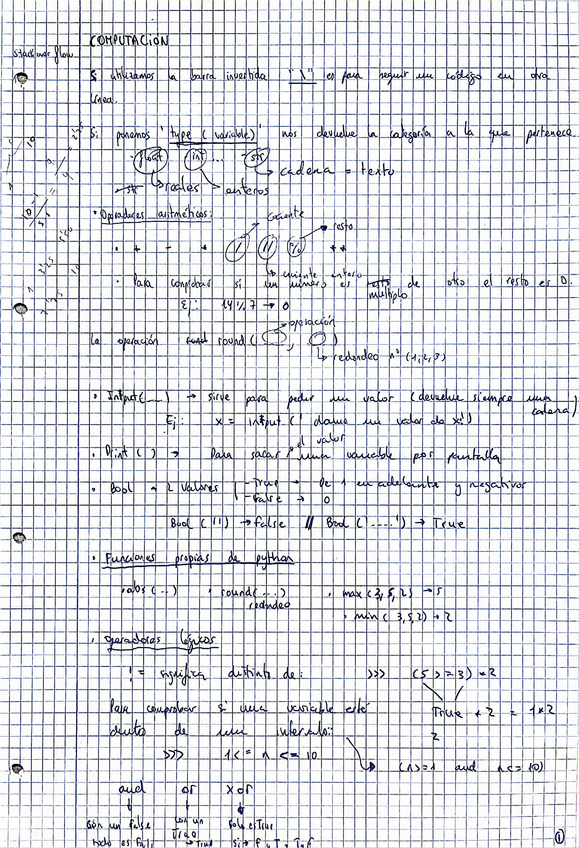 COMPUTACIÓN
stack over flow
Si utilizamos la barra invertida "\" es para seguir un código en otra
línea.
Si ponemos 'type (variable)' nos devuelve la categoría a la que pertenece.
float int ... str
reales enteros cadena = texto
· Operadores aritméticos:
cociente
resto
· + - * / // % **
cociente entero
· Para comprobar si un número es múltiplo de otro el resto es 0.
Ej: 14 % 7 → 0
operación
La operación round ( , )
redondeo nº (1,2,3)
· Intput (...) → sirve para pedir un valor (devuelve siempre una cadena)
Ej: x = intput (' dame un valor de x:')
· Print ( ) → Para sacar el valor una variable por pantalla
· Bool → 2 valores - True → De 1 en adelante y negativos
- False → 0
Bool ('') → False // Bool ('....') → True
· Funciones propias de python
· abs (..) · round (...) · max (3,5,2) → 5
redondeo
· min ( 3,5,2) → 2
· Operadores lógicos
!= significa distinto de: >>> (5 >= 3) * 2
Para comprobar si una variable esté True * 2 = 1*2
dentro de un intervalo: 2
>>> 1 <= n <= 10
(n>=1 and n<=10)
and or xor
con un False con un True
todo es False → True
1